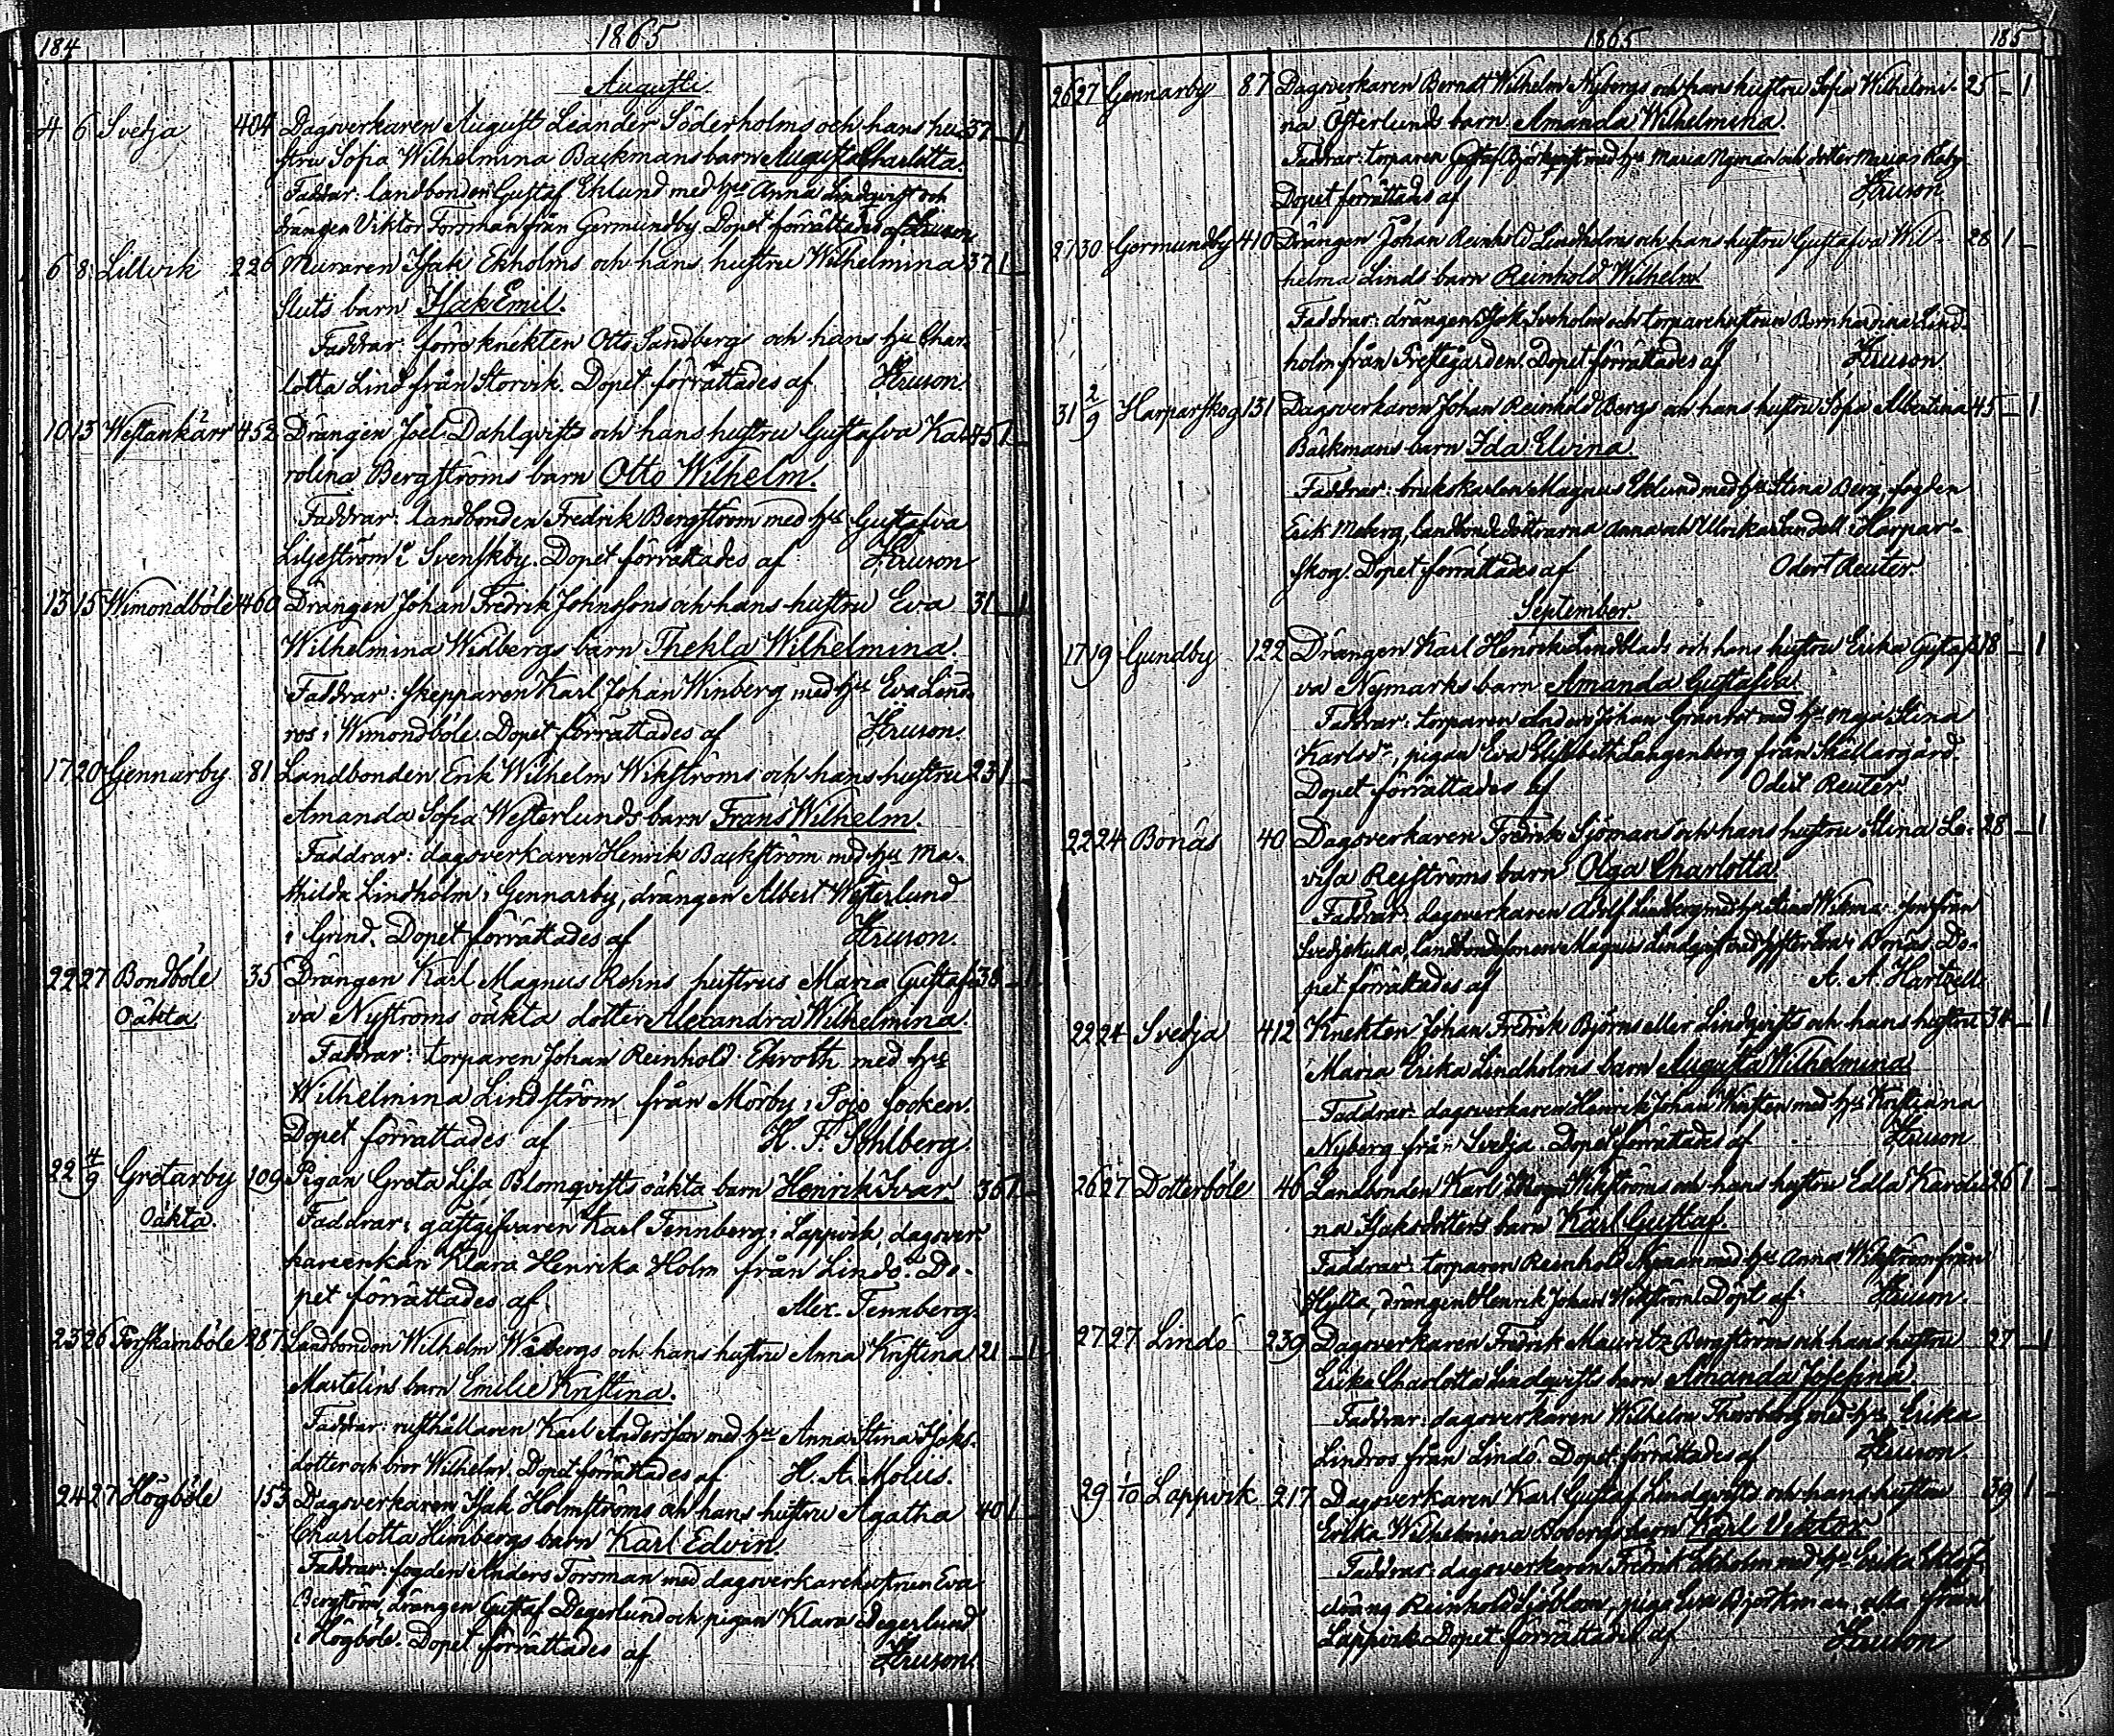 184 1865
Augusti
4 6 Svedja 404 Dagsverkaren August Leander Söderholms och hans hu- 37 – 1
stru Sofia Wilhelmina Backmans barn Augusta Charlotta.
Faddrar: landbonden Gustaf Eklund med hu Anna Lindqvist och
drängen Viktor Forsman från Germundby. Dopet förrättades af
6 8 Lillvik 226 Muraren Isak Ekholms och hans hustru Wilhelmina 37 1 –
Sluts barn Isak Emil.
Faddrar: förre knekten Otto Sandberg och hans hu Char-
lotta Lind från Storvik. Dopet förrättades af
10 13 Westankärr 452 Drängen Joel Dahlqvists och hans hustru Gustafva Ka- 45 1 –
rolina Bergströms barn Otto Wilhelm.
Faddrar: landbonden Fredrik Bergström med hu Gustafva
Liljeström i Svenskby. Dopet förrättades af
13 15 Wimondböle 460 Drängen Johan Fredrik Johnssons och hans hustru Eva 31 – 1
Wilhelmina Widbergs barn Thekla Wilhelmina.
Faddrar: skepparen Karl Johan Winberg med hu Eva Lind-
ros i Wimondböle. Dopet förrättades af
17 20 Gennarby 81 Landbonden Erik Wilhelm Wikströms och hans hustru 23 1 –
Amanda Sofia Westerlunds barn Frans Wilhelm.
Faddrar: dagsverkaren Henrik Backström med hu Ma-
thilda Lindholm i Gennarby, drängen Albert Westerlund
i Grind. Dopet förrättades af
22 27 Bondböle 35 Drängen Karl Magnus Rehns hustrus Maria Gustaf- 38 – 1
Oäkta va Nyströms oäkta dotter Alexandra Wilhelmina.
Faddrar: torparen Johan Reinhold Ekroth med hu
Wilhelmina Lindström från Mörby i Pojo socken.
Dopet förrättades af H. F. Sohlberg.
22 4/9 Gretarby 109 Pigan Greta Lisa Blomqvists oäkta barn Henrik Ivar 36 1 –
Oäkta. Faddrar: gästgifvaren Karl Tennberg i Lappvik, dagsver-
kareenkan Klara Henrika Holm från Lindö. Do-
pet förrättades af Alex. Tennberg.
23 26 Torskamböle 287 Landbonden Wilhelm Widbergs och hans hustru Anna Kristina 21 – 1
Martelins barn Emilie Kristina.
Faddrar: rusthållaren Karl Andersson med hu Anna Stina Isaks-
dotter och bror Wilhelm. Dopet förrättades af H. A. Moliis.
24 27 Högböle 153 Dagsverkaren Isak Holmströms och hans hustru Agatha 40 1 –
Charlotta Himbergs barn Karl Edvin.
Faddrar: fogden Anders Forsman med dagsverkarehustrun Eva
Bergström, drängen Gustaf Degerlund och pigan Klara Degerlund
i Högböle. Dopet förrättades af
1865 185
26 27 Gennarby 87 Dagsverkaren Berndt Wilhelm Nybergs och hans hustru Sofia Wilhelmi- 25 – 1
na Österlunds barn Amanda Wilhelmina.
Faddrar: torparen Gustaf Björkqvist med hu Maria Nyman och dotter Maria
Dopet förrättades af
27 30 Germundby 410 Drängen Johan Reinhold Lindholms och hans hustru Gustafva Wil- 28 1 –
helma Linds barn Reinhold Wilhelm
Faddrar: drängen Isak Sveholm och torparehustrun Bernhardina Lind-
holm från Prestegården. Dopet förrättades af
31 2/9 Harparskog 131 Dagsverkaren Johan Reinhold Bergs och hans hustru Sofia Albertina 45 – 1
Backmans barn Ida Elvina
Faddrar: brukskarlen Magnus Eklund med hu Stina Berg, fogden
Erik Moberg, landbondedöttrarna Anna och Ulrika Sandell i Harpar-
skog. Dopet förrättades af Odert Reuter.
September
17 19 Gundby 122 Drängen Karl Henrik Lindblads och hans hustru Erika Gustaf- 18 – 1
va Nymarks barn Amanda Gustafva
Faddrar: torparen Anders Johan Granrot med hu Maja Stina
Karlsdr, pigan Eva Elisabeth Langenberg från Skällargård.
Dopet förrättades af Odert Reuter.
22 24 Bonäs 40 Dagsverkaren Fredrik Sjömans och hans hustru Stina Lo- 28 – 1
visa Rejströms barn Olga Charlotta.
Faddrar: dagsverkaren Adolf Lindberg med hu Stina från
landbondesonen Magnus Lindqvist med syster Eva i Bonäs. Do-
pet förrättades af A. A. Hartzell.
22 24 Svedja 412 Knekten Johan Fredrik Björns eller Lindqvists och hans hustru 34 – 1
Maria Erika Lindholms barn Augusta Wilhelmina
Faddrar: dagsverkaren Henrik Johan Winsten med hu Kristiana
Nyberg från Svedja. Dopet förrättades af
26 27 Dotterböle 46 Landbonden Karl Magn. Wikströms och hans hustru Edla Karoli- 26 1 –
na Isaksdotters barn Karl Gustaf.
Faddrar: torparen Reinhold Nyman med hu Anna Wikström från
Hylta, drängen Henrik Johan Wikström. Döpt af
27 27 Lindö 239 Dagsverkaren Fredrik Mauritz Bergströms och hans hustru 27 – 1
Erika Charlotta Lindqvists barn Amanda Josefina
Faddrar: dagsverkaren Wilhelm Thorsberg med hu Erika
Lindros från Lindö. Dopet förrättades af
29 1/10 Lappvik 217 Dagsverkaren Karl Gustaf Lindqvists och hans hustru 39 1 –
Erika Wilhelmina Bobergs barn Karl Viktor
Faddrar: dagsverkaren Fredrik Ekholm med hu Erika Eklöf,
dräng Reinhold Sjöblom, piga Eva Björkman, alla från
Lappvik. Dopet förrättades af